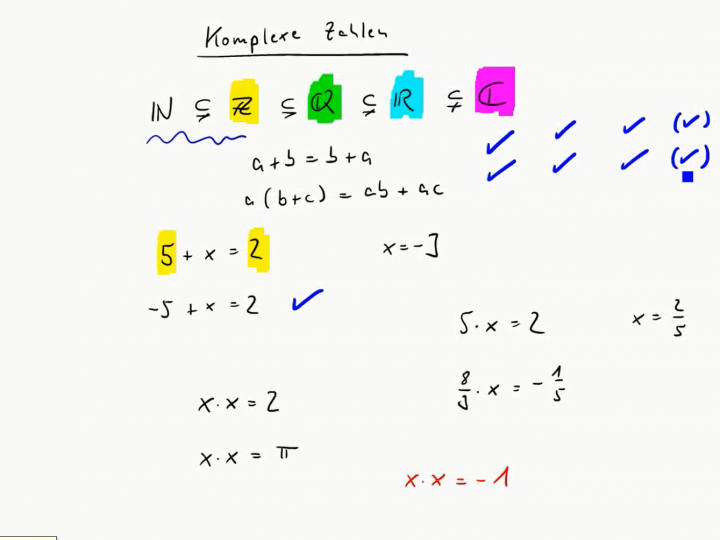 Komplexe Zahlen
ℕ ⊊ ℤ ⊊ ℚ ⊊ ℝ ⊊ ℂ
a + b = b + a ✓ ✓ ✓ (✓)
a (b+c) = ab + ac ✓ ✓ ✓ (✓)
5 + x = 2 x = -3
-5 + x = 2 ✓
5 · x = 2 x = 2/5
8/3 · x = - 1/5
x · x = 2
x · x = π
x · x = -1